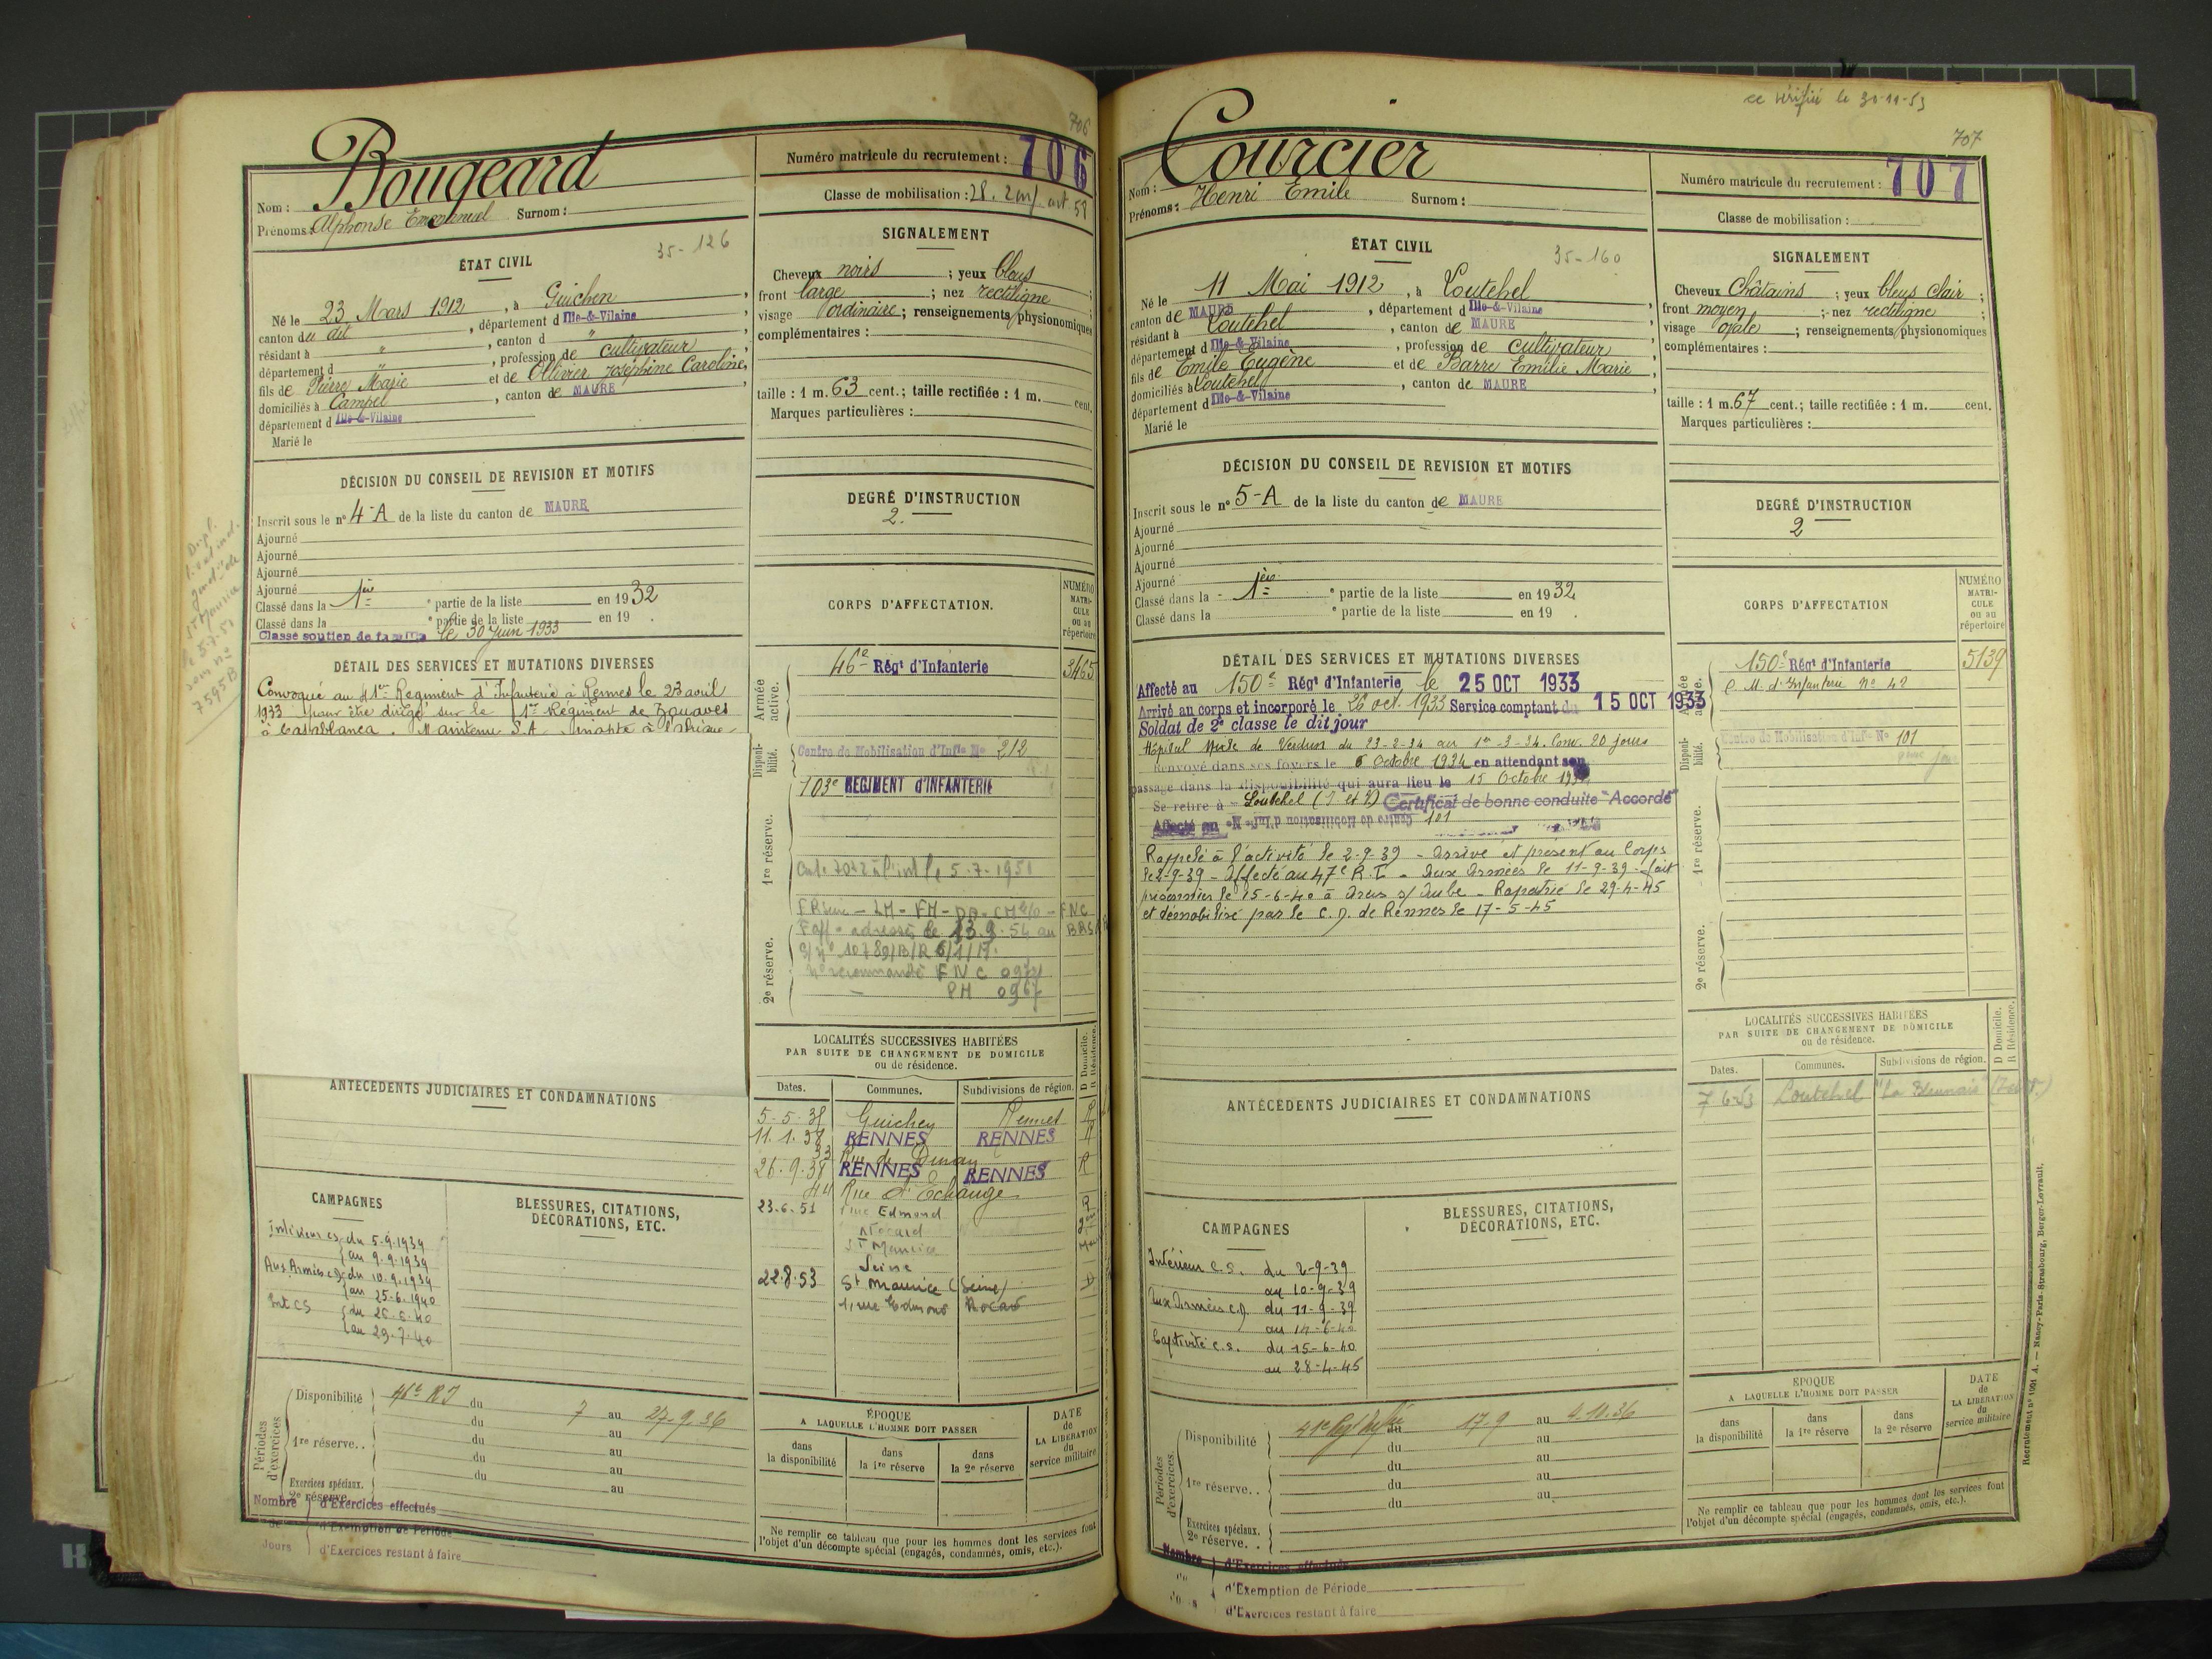 706
Bougeard
Nom :
Prénoms : Alphonse Emmanuel Surnom :
35-126
ÉTAT CIVIL
Né le 23 Mars 1912, à Guichen,
canton du dit, département d Ille-&-Vilaine
résidant à ", canton d "
département d ", profession de cultivateur
fils de Pierre Marie et de Ollivier Joséphine Caroline,
domiciliés à Campel, canton de MAURE
département d Ille-&-Vilaine
Marié le
DÉCISION DU CONSEIL DE REVISION ET MOTIFS
Inscrit sous le n° 4-A de la liste du canton de MAURE
Ajourné
Ajourné
Ajourné
Ajourné
Classé dans la 1ère partie de la liste en 1932
Classé dans la e partie de la liste en 19 .
Classé soutien de famille le 30 Juin 1933
DÉTAIL DES SERVICES ET MUTATIONS DIVERSES
Convoqué au 41er Régiment d'Infanterie à Rennes le 23 avril
1933 pour être dirigé sur le 1er Régiment de Zouaves
à Casablanca. Maintenu S.A. Inapte à l'Afrique
ANTÉCÉDENTS JUDICIAIRES ET CONDAMNATIONS
CAMPAGNES
Intérieur cs du 5.9.1939
au 9.9.1939
Aux Armées du 10.9.1939
au 25-6.1940
Int CS du 26.6.40
au 29.7.40
BLESSURES, CITATIONS,
DÉCORATIONS, ETC.
Périodes d'exercices
Disponibilité 46e RI du 7 au 27-9-36
du au
1re réserve. . du au
du au
du au
Exercices spéciaux.
2e réserve
Nombre de Jours
d'Exercices effectués
d'Exemption de Période
d'Exercices restant à faire
Numéro matricule du recrutement : 706
Classe de mobilisation : 28.
SIGNALEMENT
Cheveux noirs ; yeux bleus
front large ; nez rectiligne
visage ordinaire ; renseignements physionomiques
complémentaires :
taille : 1 m. 63 cent. ; taille rectifiée : 1 m. cent.
Marques particulières :
DEGRÉ D'INSTRUCTION
2.
CORPS D'AFFECTATION.
NUMÉRO MATRI-CULE ou au répertoire
Armée active.
46e Régt d'Infanterie 3465
Disponi-bilité.
Centre de Mobilisation d'Infie No 212
103e REGIMENT d'INFANTERIE
1re réserve.
5-7-1951
2e réserve.
adressés le 13.9.54 au
recommandé FNC
LOCALITÉS SUCCESSIVES HABITÉES
PAR SUITE DE CHANGEMENT DE DOMICILE
ou de résidence.
Dates. Communes. Subdivisions de région. D Domicile. R Résidence.
Guichen Rennes
11.1.38 RENNES RENNES
33 Rue de Dinan
26.9.38 RENNES RENNES R
44 Rue d'Echange
23.6.51 1 rue Edmond
Nocard
St Maurice
Seine
22.8.53 St Maurice (Seine) D
1, rue Edmond Nocard
ÉPOQUE
A LAQUELLE L'HOMME DOIT PASSER
DATE de LA LIBÉRATION du service militaire
dans la disponibilité
dans la 1re réserve
dans la 2e réserve
Ne remplir ce tableau que pour les hommes dont les services font
l'objet d'un décompte spécial (engagés, condamnés, omis, etc.).
vérifié le 30-11-53
707
Courcier
Nom :
Prénoms : Henri Emile Surnom :
35-160
ÉTAT CIVIL
Né le 11 Mai 1912, à Loutehel
canton de MAURE, département d Ille-&-Vilaine
résidant à Loutehel, canton de MAURE
département d Ille-&-Vilaine, profession de cultivateur
fils de Emile Eugène et de Barre Emilie Marie
domiciliés à Loutehel, canton de MAURE
département d Ille-&-Vilaine
Marié le
DÉCISION DU CONSEIL DE REVISION ET MOTIFS
Inscrit sous le n° 5-A de la liste du canton de MAURE
Ajourné
Ajourné
Ajourné
Ajourné
Classé dans la 1ère partie de la liste en 1932
Classé dans la e partie de la liste en 19 .
DÉTAIL DES SERVICES ET MUTATIONS DIVERSES
Affecté au 150e Régt d'Infanterie le 25 OCT 1933
Arrivé au corps et incorporé le 26 oct. 1933 Service comptant du 15 OCT 1933
Soldat de 2e classe le dit jour
Hôpital Mixte de Verdun du 23-2-34 au 1er-3-34. Conv. 20 jours
Renvoyé dans ses foyers le 6 Octobre 1934 en attendant son
passage dans la disponibilité qui aura lieu le 15 Octobre 1934
Se retire à Loutehel (I et V) Certificat de bonne conduite "Accordé"
Affecté au Centre de Mobilisation d'Infie No 101
Rappelé à l'activité le 2-9-39 - Arrivé et présent au Corps
le 2-9-39 - Affecté au 47e R.I. - Aux Armées le 11-9-39 - fait
prisonnier le 15-6-40 à Arcis s/ Aube - Rapatrié le 29-4-45
et démobilisé par le C.D. de Rennes le 17-5-45
ANTÉCÉDENTS JUDICIAIRES ET CONDAMNATIONS
CAMPAGNES
Intérieur C.S. du 2-9-39
au 10-9-39
Aux Armées C.D. du 11-9-39
au 14-6-40
Captivité C.S. du 15-6-40
au 28-4-45
BLESSURES, CITATIONS,
DÉCORATIONS, ETC.
Périodes d'exercices.
Disponibilité 41e Régt Inf du 17.9 au 4.11.36
du au
du au
1re réserve. . du au
du au
Exercices spéciaux.
2e réserve. .
Nombre
d'Exercices effectués
d'Exemption de Période
d'Exercices restant à faire
Numéro matricule du recrutement : 707
Classe de mobilisation :
SIGNALEMENT
Cheveux Châtains ; yeux bleus clair ;
front moyen ; nez rectiligne ;
visage ovale ; renseignements physionomiques
complémentaires :
taille : 1 m. 67 cent. ; taille rectifiée : 1 m. cent.
Marques particulières :
DEGRÉ D'INSTRUCTION
2
CORPS D'AFFECTATION
NUMÉRO MATRI-CULE ou au répertoire
Armée active.
150e Régt d'Infanterie 5139
C. M. d'Infanterie No 42
Disponi-bilité.
Centre de Mobilisation d'Infie No 101
1re réserve.
2e réserve.
LOCALITÉS SUCCESSIVES HABITÉES
PAR SUITE DE CHANGEMENT DE DOMICILE
ou de résidence.
Dates. Communes. Subdivisions de région. D Domicile. R Résidence.
7-6-53 Loutehel
ÉPOQUE
A LAQUELLE L'HOMME DOIT PASSER
DATE de LA LIBÉRATION du service militaire
dans la disponibilité
dans la 1re réserve
dans la 2e réserve
Ne remplir ce tableau que pour les hommes dont les services font
l'objet d'un décompte spécial (engagés, condamnés, omis, etc.).
Recrutement n° 1091 A. — Nancy-Paris-Strasbourg, Berger-Levrault.